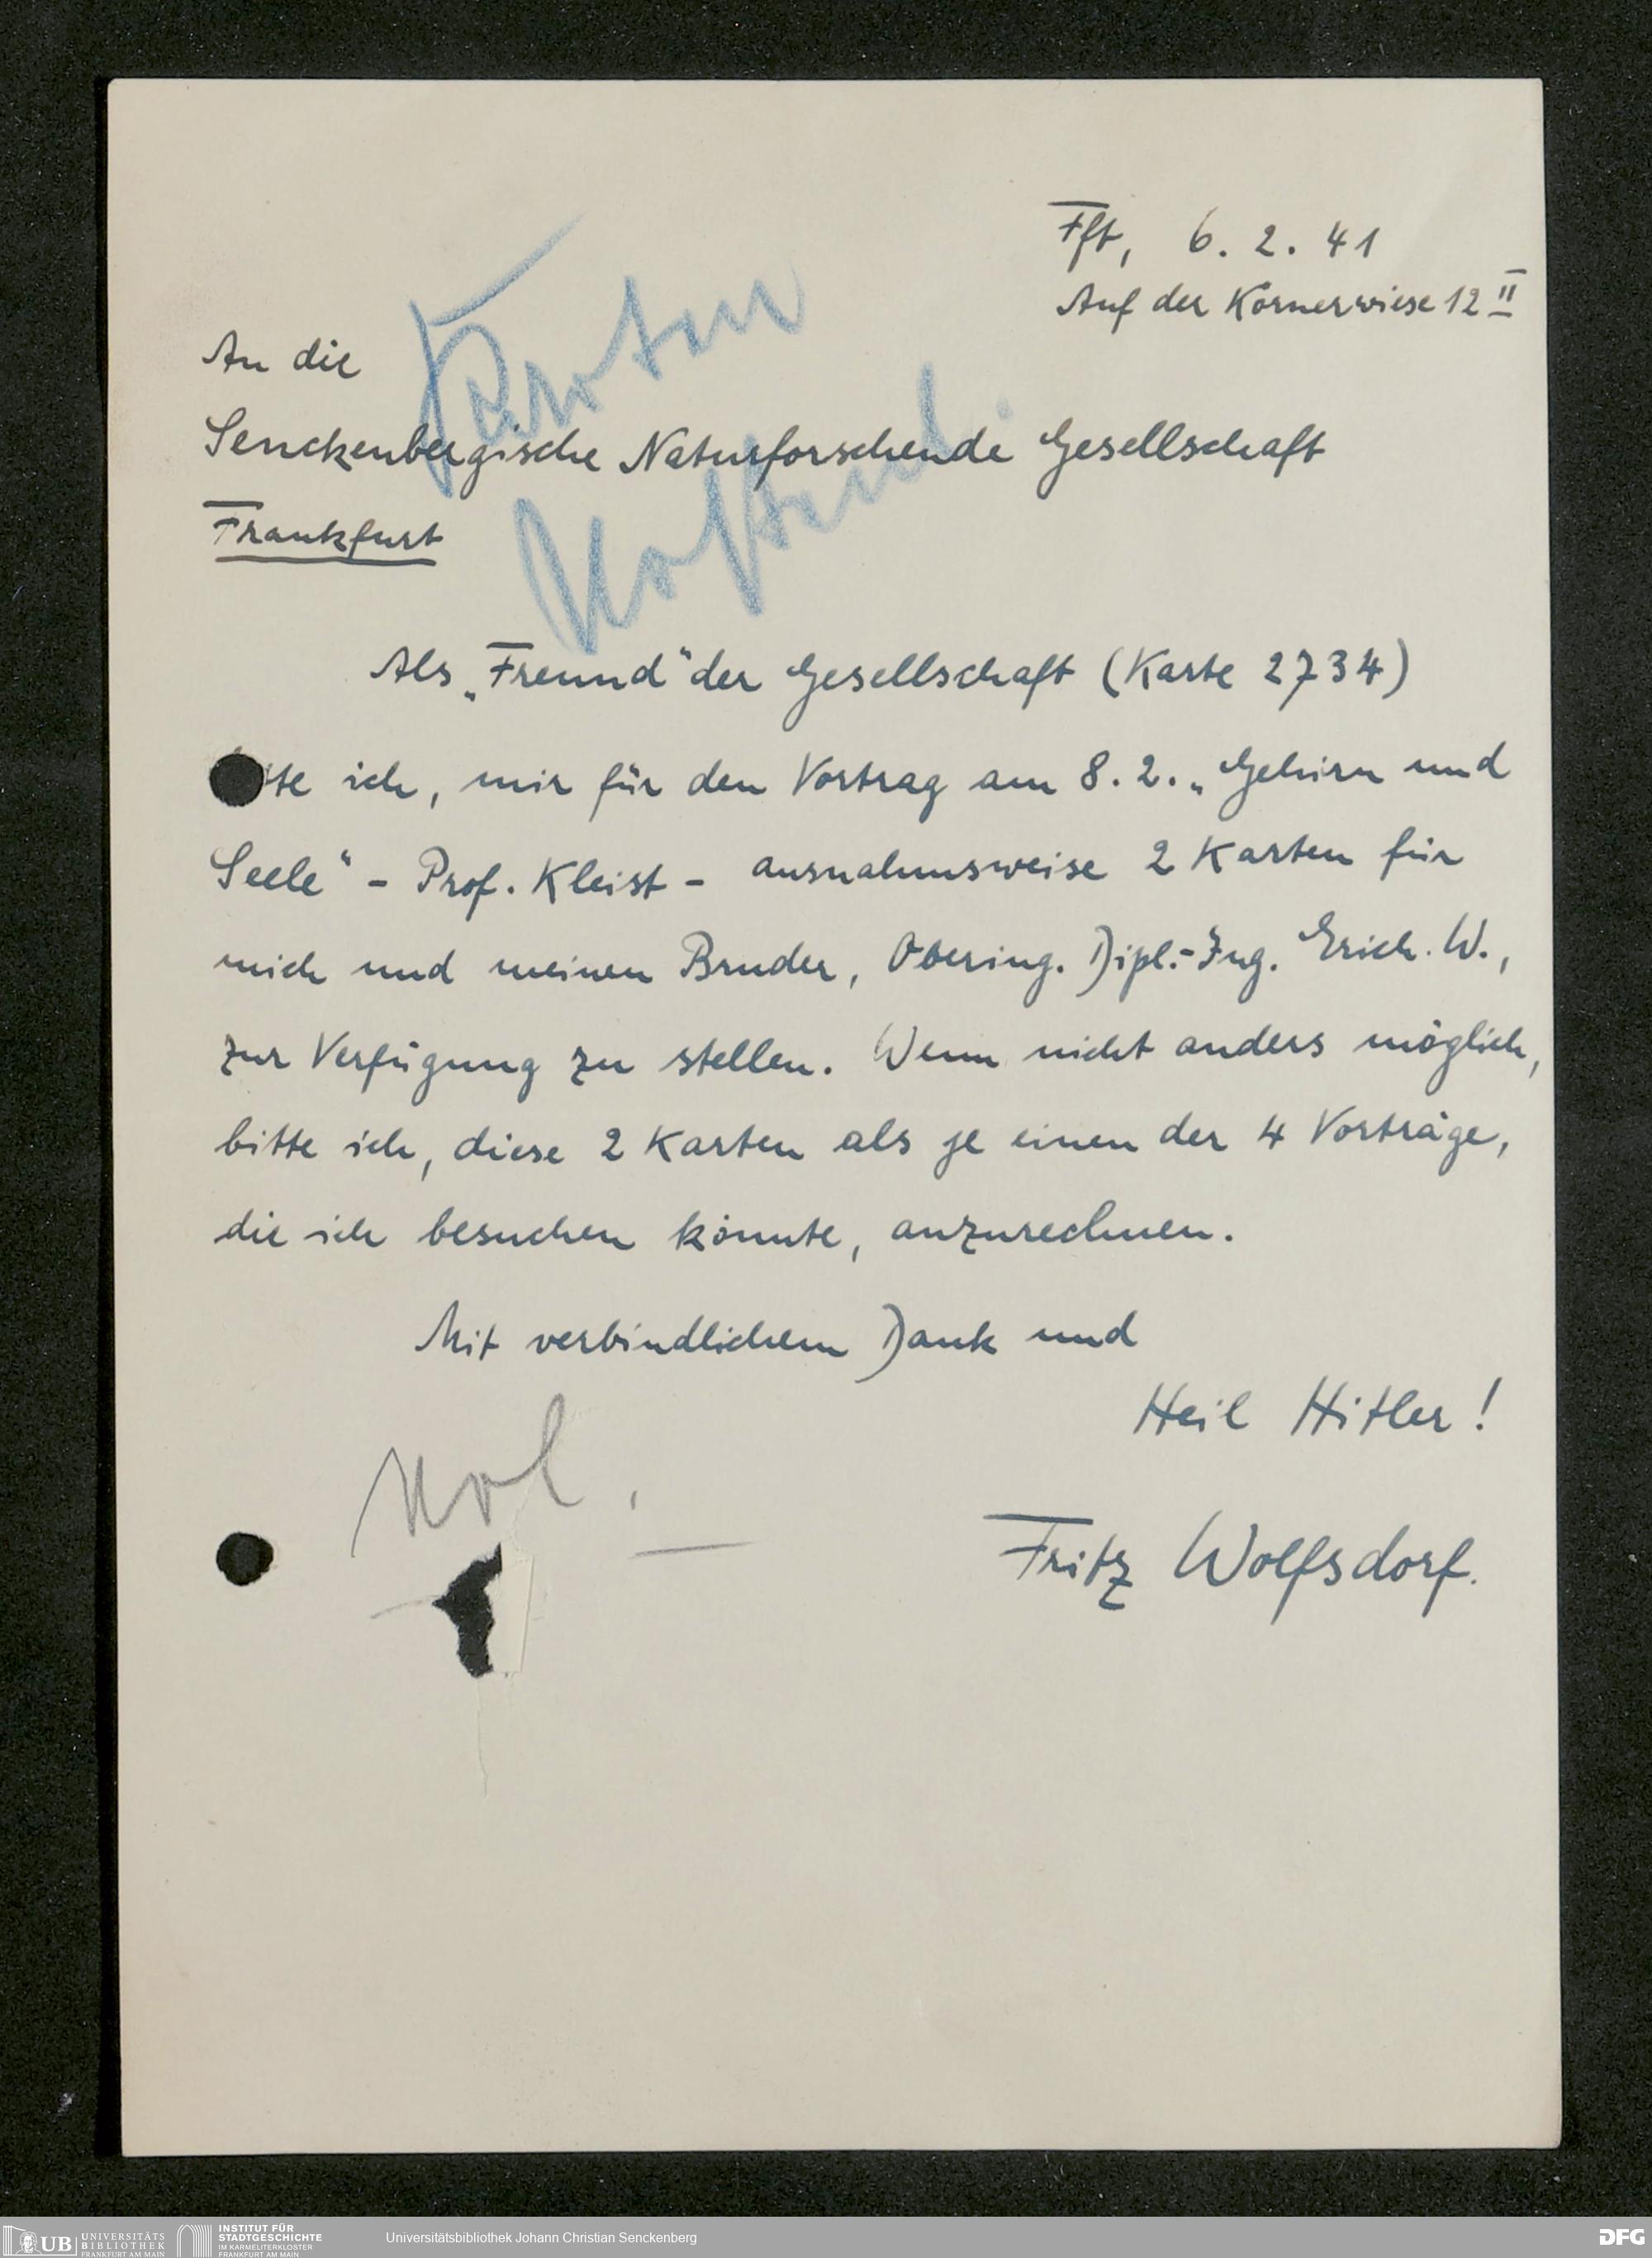 Fft, 6. 2. 41
Auf der Körnerwiese 12 II
An die
Senckenbergische Naturforschende Gesellschaft
Frankfurt
Als „Freund“ der Gesellschaft (Karte 2734)
ich, mir für den Vortrag am 8. 2. „Gehirn und
Seele“ - Prof. Kleist - ausnahmsweise 2 Karten für
mich und meinen Bruder, Obering. Dipl.-Ing. Erich W.,
zur Verfügung zu stellen. Wenn nicht anders möglich,
bitte ich, diese 2 Karten als je einen der 4 Vorträge,
die ich besuchen könnte, anzurechnen.
Mit verbindlichem Dank und
Heil Hitler!
Fritz Wolfsdorf.
UB UNIVERSITÄTS
BIBLIOTHEK
FRANKFURT AM MAIN
INSTITUT FÜR
STADTGESCHICHTE
IM KARMELITERKLOSTER
FRANKFURT AM MAIN
Universitätsbibliothek Johann Christian Senckenberg
DFG